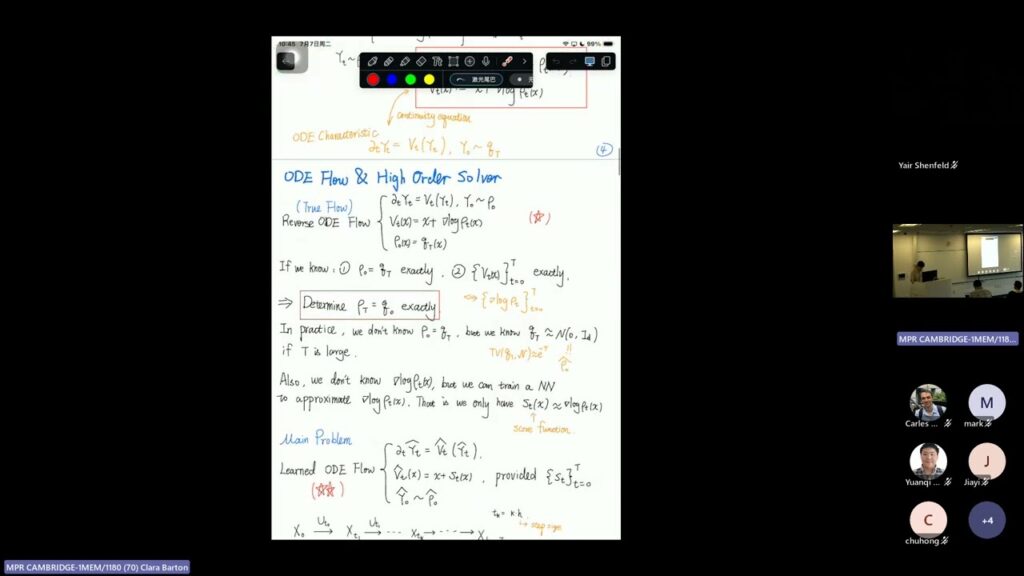 10:45 7月7日周二
99%
激光尾巴
V_t(x) = x + ∇log ρ_t(x)
continuity equation
ODE Characteristic
∂_t Y_t = V_t(Y_t), Y_0 ~ q_T
④
ODE Flow & High Order Solver
(True Flow)
Reverse ODE Flow { ∂_t Y_t = V_t(Y_t), Y_0 ~ ρ_0
V_t(x) = x + ∇log ρ_t(x) (☆)
ρ_0(x) = q_T(x)
If we know: ① ρ_0 = q_T exactly. ② {V_t(x)}_{t=0}^T exactly.
⇒ Determine ρ_T = q_0 exactly ⇔ {∇log ρ_t}_{t=0}^T
In practice, we don't know ρ_0 = q_T, but we know q_T ≈ N(0, I_d)
if T is large. TV(q_T, N) ≈ e^{-T} \hat{ρ}_0
Also, we don't know ∇log ρ_t(x), but we can train a NN
to approximate ∇log ρ_t(x). That is we only have S_t(x) ≈ ∇log ρ_t(x)
↑
score function.
Main Problem
Learned ODE Flow { ∂_t \hat{Y}_t = \hat{V}_t(\hat{Y}_t).
\hat{V}_t(x) = x + S_t(x), provided {S_t}_{t=0}^T
(☆☆) \hat{Y}_0 ~ \hat{ρ}_0
t_k = k·h
X_0 → X_{t_1} → ··· X_{t_k} → ···
Yair Shenfeld
MPR CAMBRIDGE-1MEM/118...
Carles ...
M
mark
Yuanqi ...
J
Jiayi
C
chuhong
+4
MPR CAMBRIDGE-1MEM/1180 (70) Clara Barton